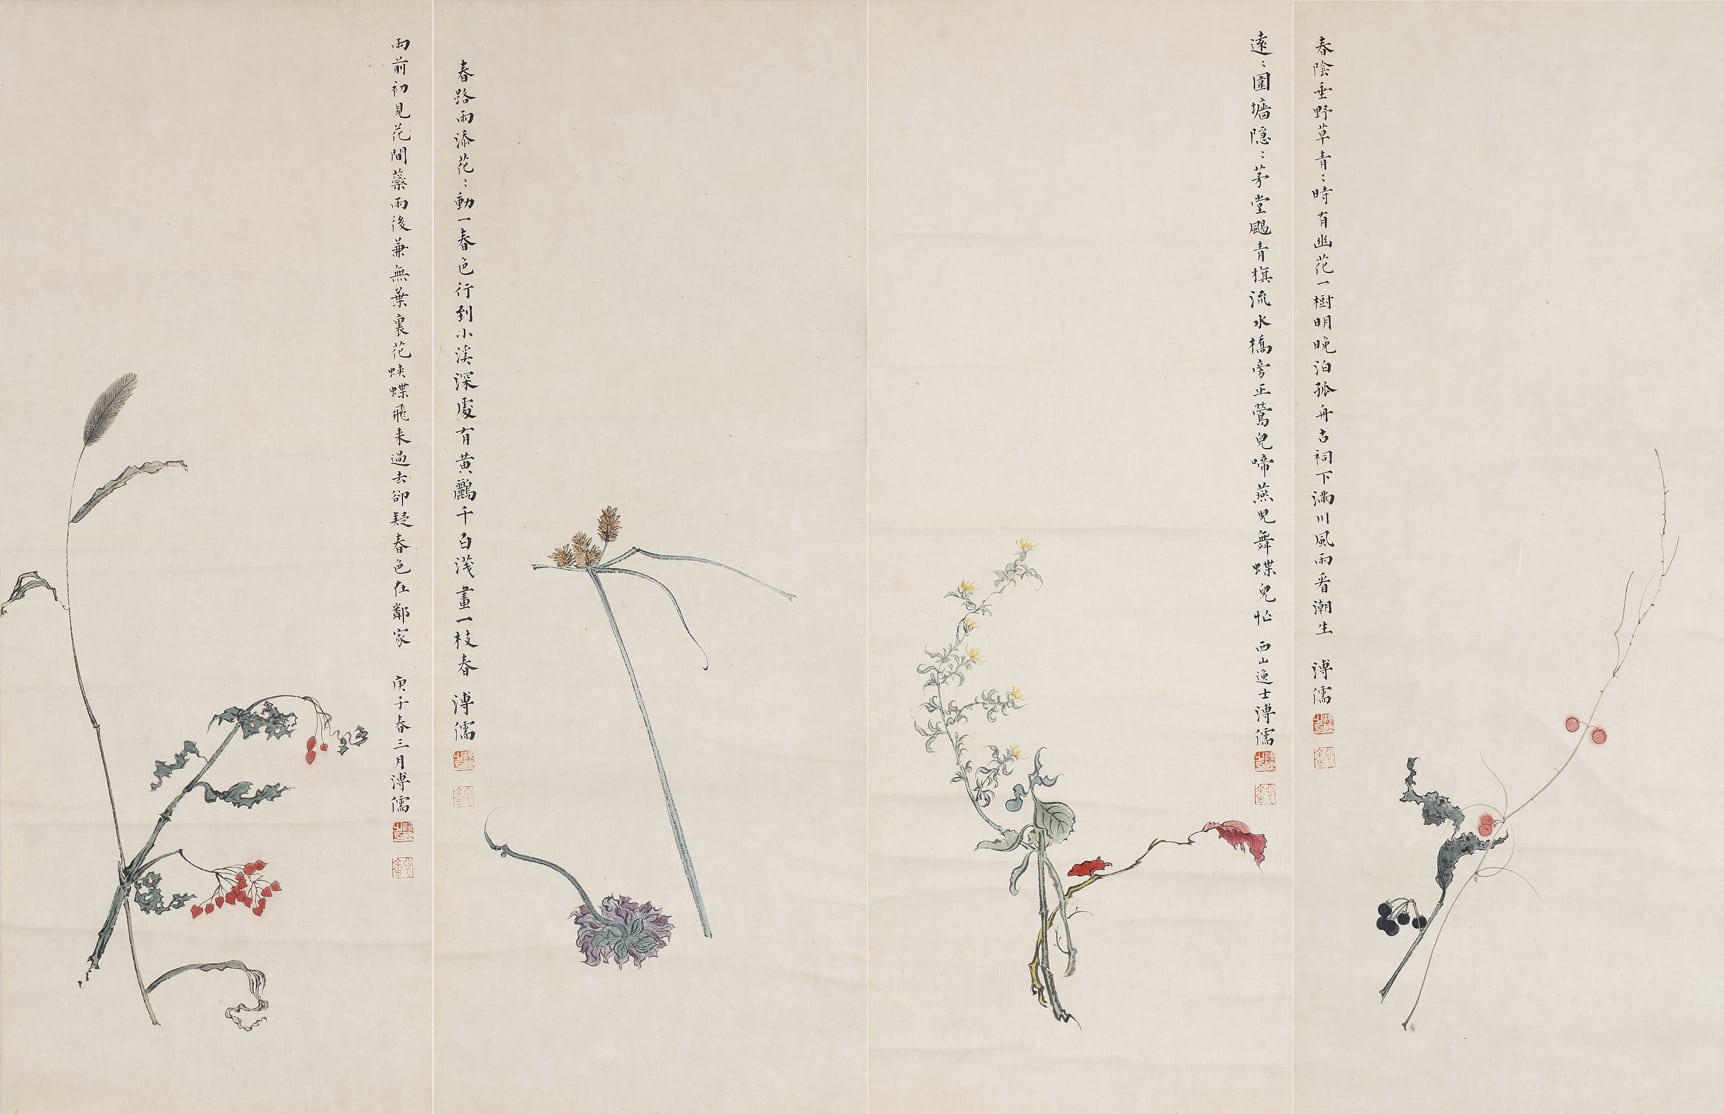 春陰垂野草青〻時有幽花一樹明晚泊孤舟古祠下滿川風雨看潮生 溥儒
遠〻圍墻隱〻茅堂颺青旗流水橋旁正鶯兒啼燕兒舞蝶兒忙 西山逸士溥儒
春路雨添花〻動一春色行到小溪深處有黃鸝千百淺畫一枝春 溥儒
雨前初見花間蘂雨後兼無葉裏花蛺蝶飛来過去卻疑春色在鄰家 庚子春三月溥儒